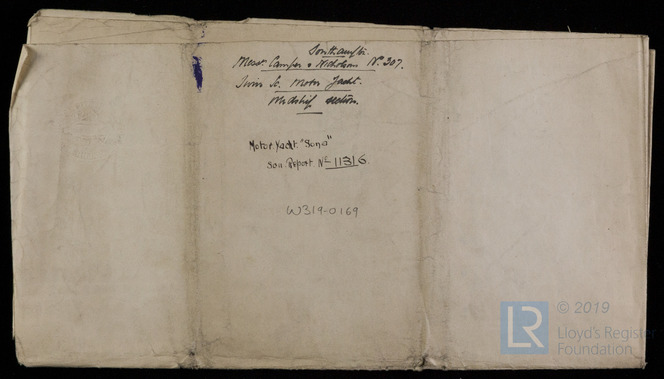 Southampton.
Messrs Camper & Nicholson No. 307.
Twin Sc. Motor Yacht.
Midship Section.
Motor Yacht "Sona"
Sou Report No 11316.
W319-0169
LR
© 2019
Lloyd's Register
Foundation